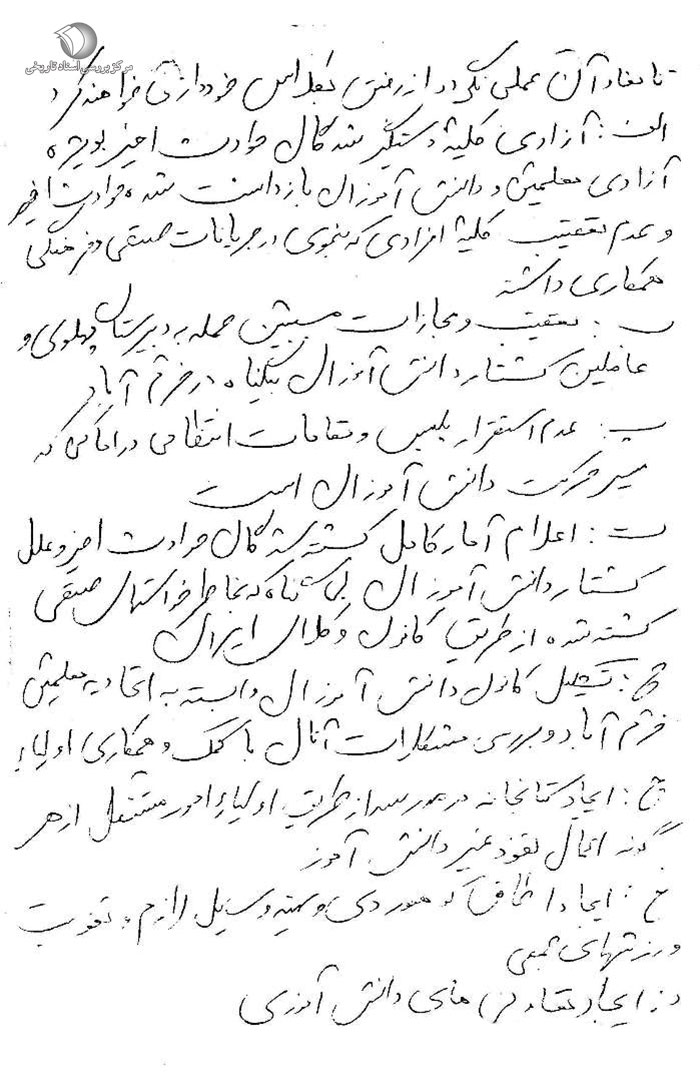 مرکز بررسی اسناد تاریخی
تا مفاد آن عملی نگردد از رفتن بکلاس خودداری خواهند کرد
الف: آزادی کلیهٔ دستگیر شدگان حوادث اخیر بویژه
آزادی معلمین و دانش آموزان بازداشت شده حوادث اخیر
و عدم تعقیب کلیهٔ افرادی که بنحوی در جریانات صنفی و فرهنگی
همکاری داشته
ب: تعقیب و مجازات مسببین حمله به دبیرستان پهلوی و
عاملین کشتار دانش آموزان بیگناه در خرم آباد
پ: عدم استقرار پلیس و مقامات انتظامی در اماکنی که
مسیر حرکت دانش آموزان است
ت: اعلام آمار کامل کشته شدگان حوادث اخیر و علل
کشتار دانش آموزان بی گناه که بخاطر خواستهای صنفی
کشته شده از طریق کانون وکلای ایران
ج: تشکیل کانون دانش آموزان وابسته به اتحادیه معلمین
خرم آباد و بررسی مشکلات آنان با کمک و همکاری اولیاء
چ: ایجاد کتابخانه در مدرسه از طریق اولیاء امور مستقل از هر
گونه اعمال نفوذ غیر دانش آموز
خ: ایجاد اطاق کوهنوردی و تهیه وسایل لازم و تقویت
ورزشهای جمعی
د: ایجاد دانش آموزی